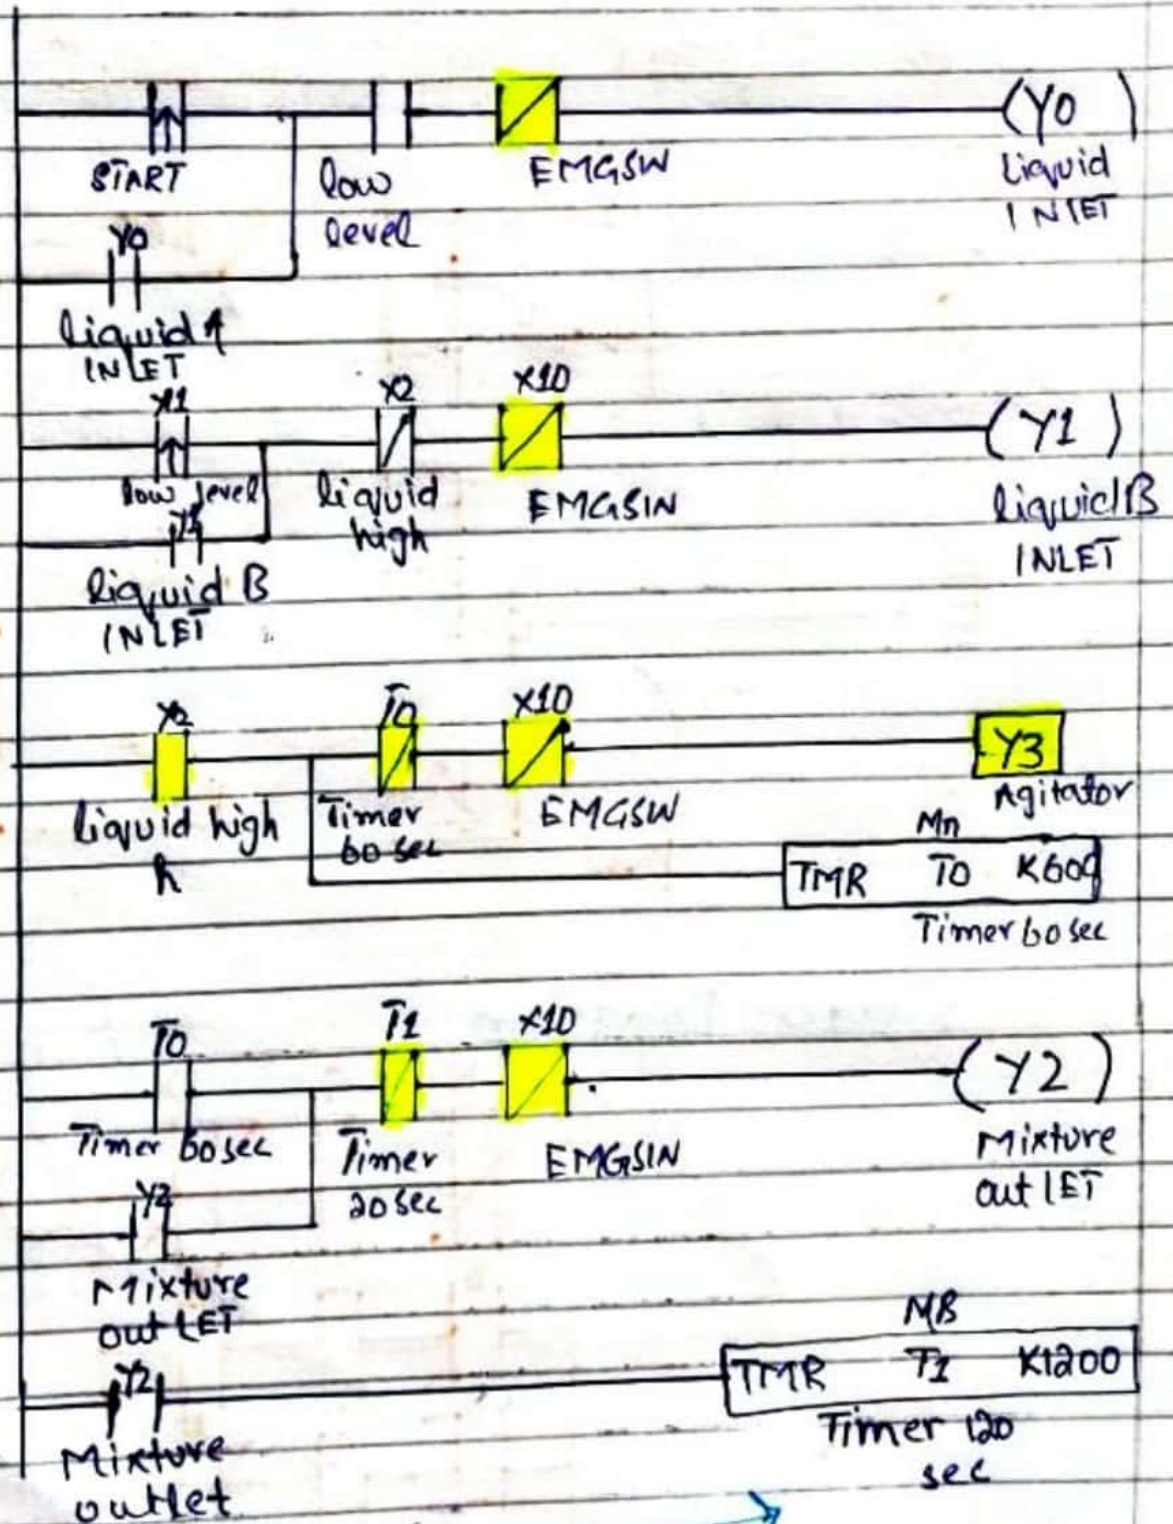 (Y0 )
START
low
level
EMGSW
Liquid
INLET
Y0
liquid A
INLET
X1
X2
X10
(Y1)
low level
liquid
high
EMGSIN
liquid B
INLET
Y1
liquid B
INLET
X2
T0
X10
Y3
liquid high
h
Timer
60 sec
EMGSW
Agitator
Mn
TMR T0 K600
Timer 60 sec
T0
T1
X10
(Y2)
Timer 60 sec
Timer
20 sec
EMGSIN
Mixture
out LET
Y2
Mixture
out LET
MB
Y2
TMR T1 K1200
Mixture
outlet
Timer 120
sec